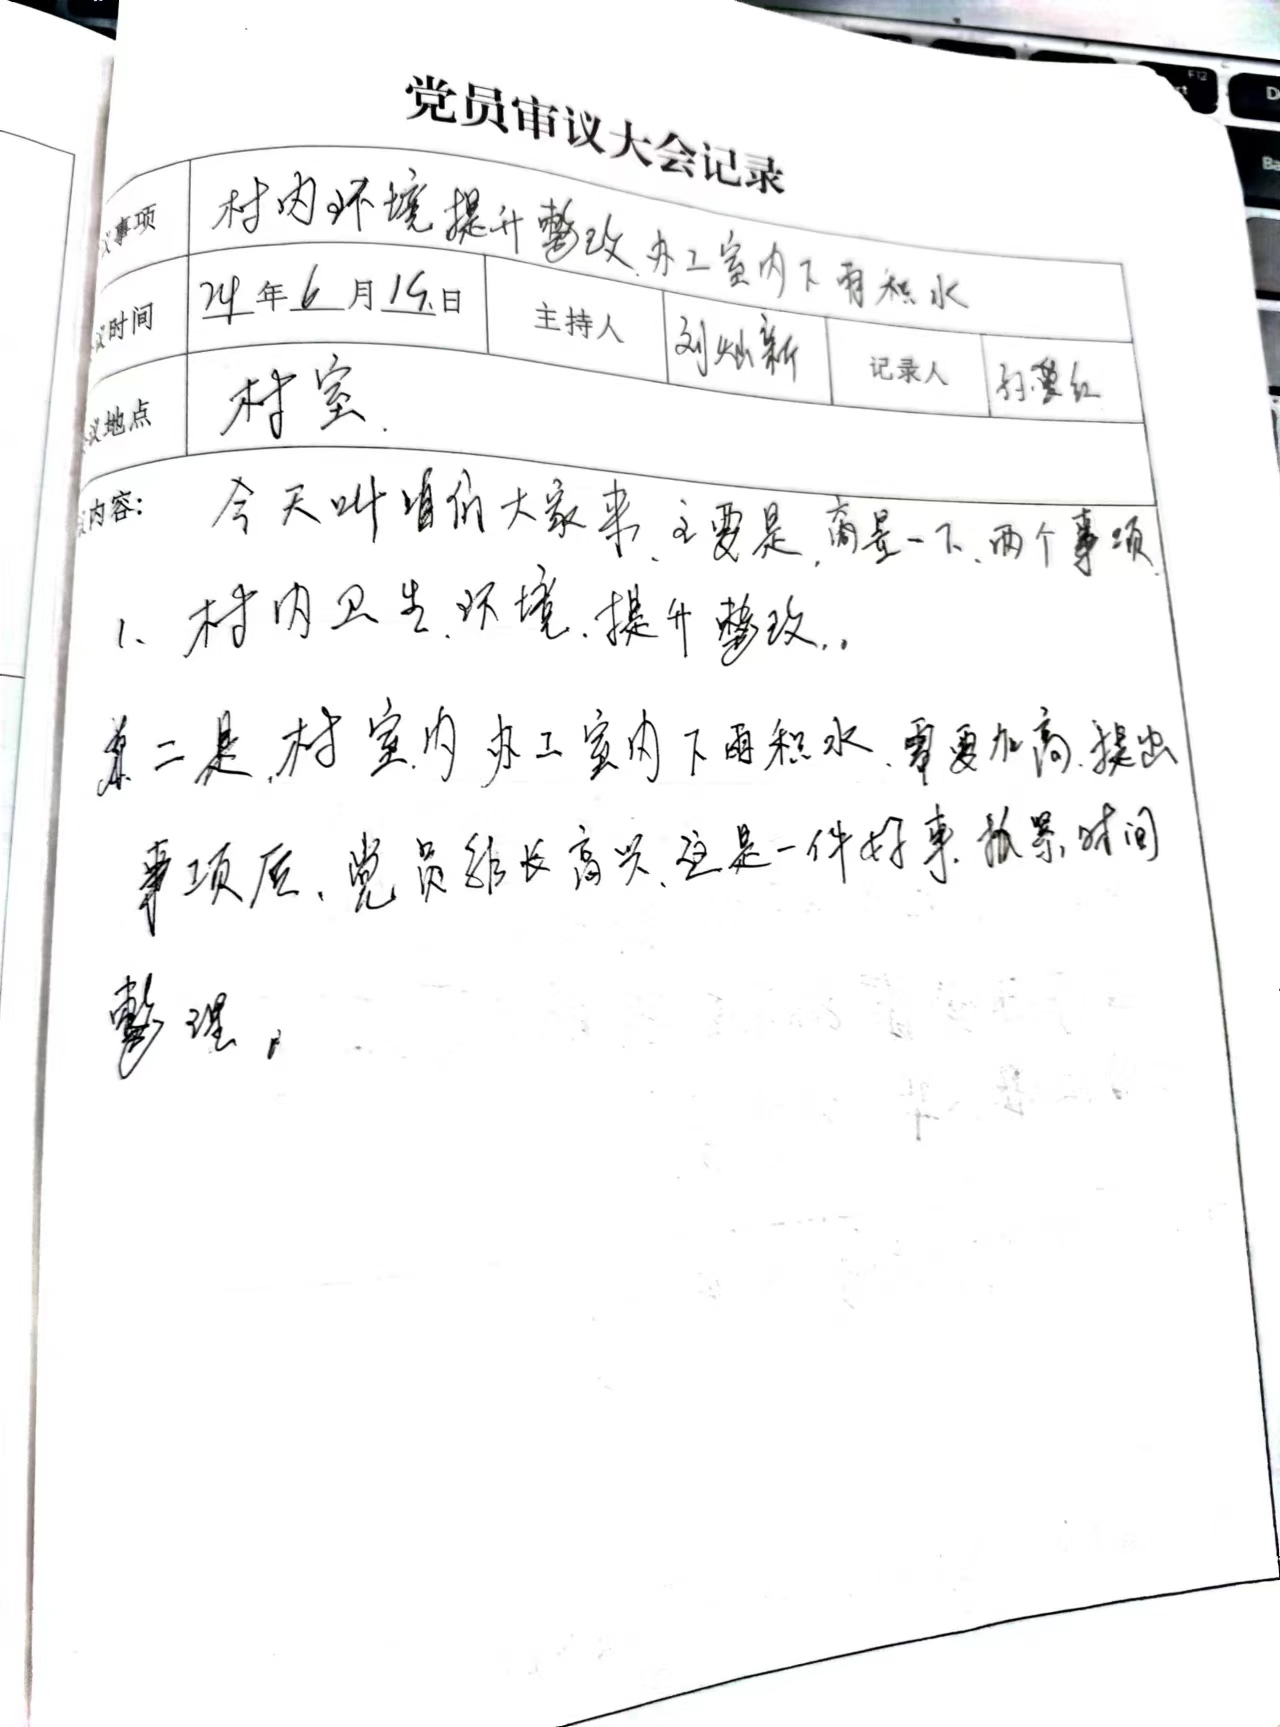 党员审议大会记录
议事项 村内环境提升整改、办工室内下雨积水
议时间 24年6月15日 主持人 刘灿新 记录人 孙 红
议地点 村室.
议内容: 今天叫咱们大家来、主要是,商量一下、两个事项.
1、村内卫生、环境、提升整改..
第二是,村室内办工室内下雨积水、需要加高.提出
事项后、党员组长高兴、这是一件好事.抓紧时间
整理。
F12